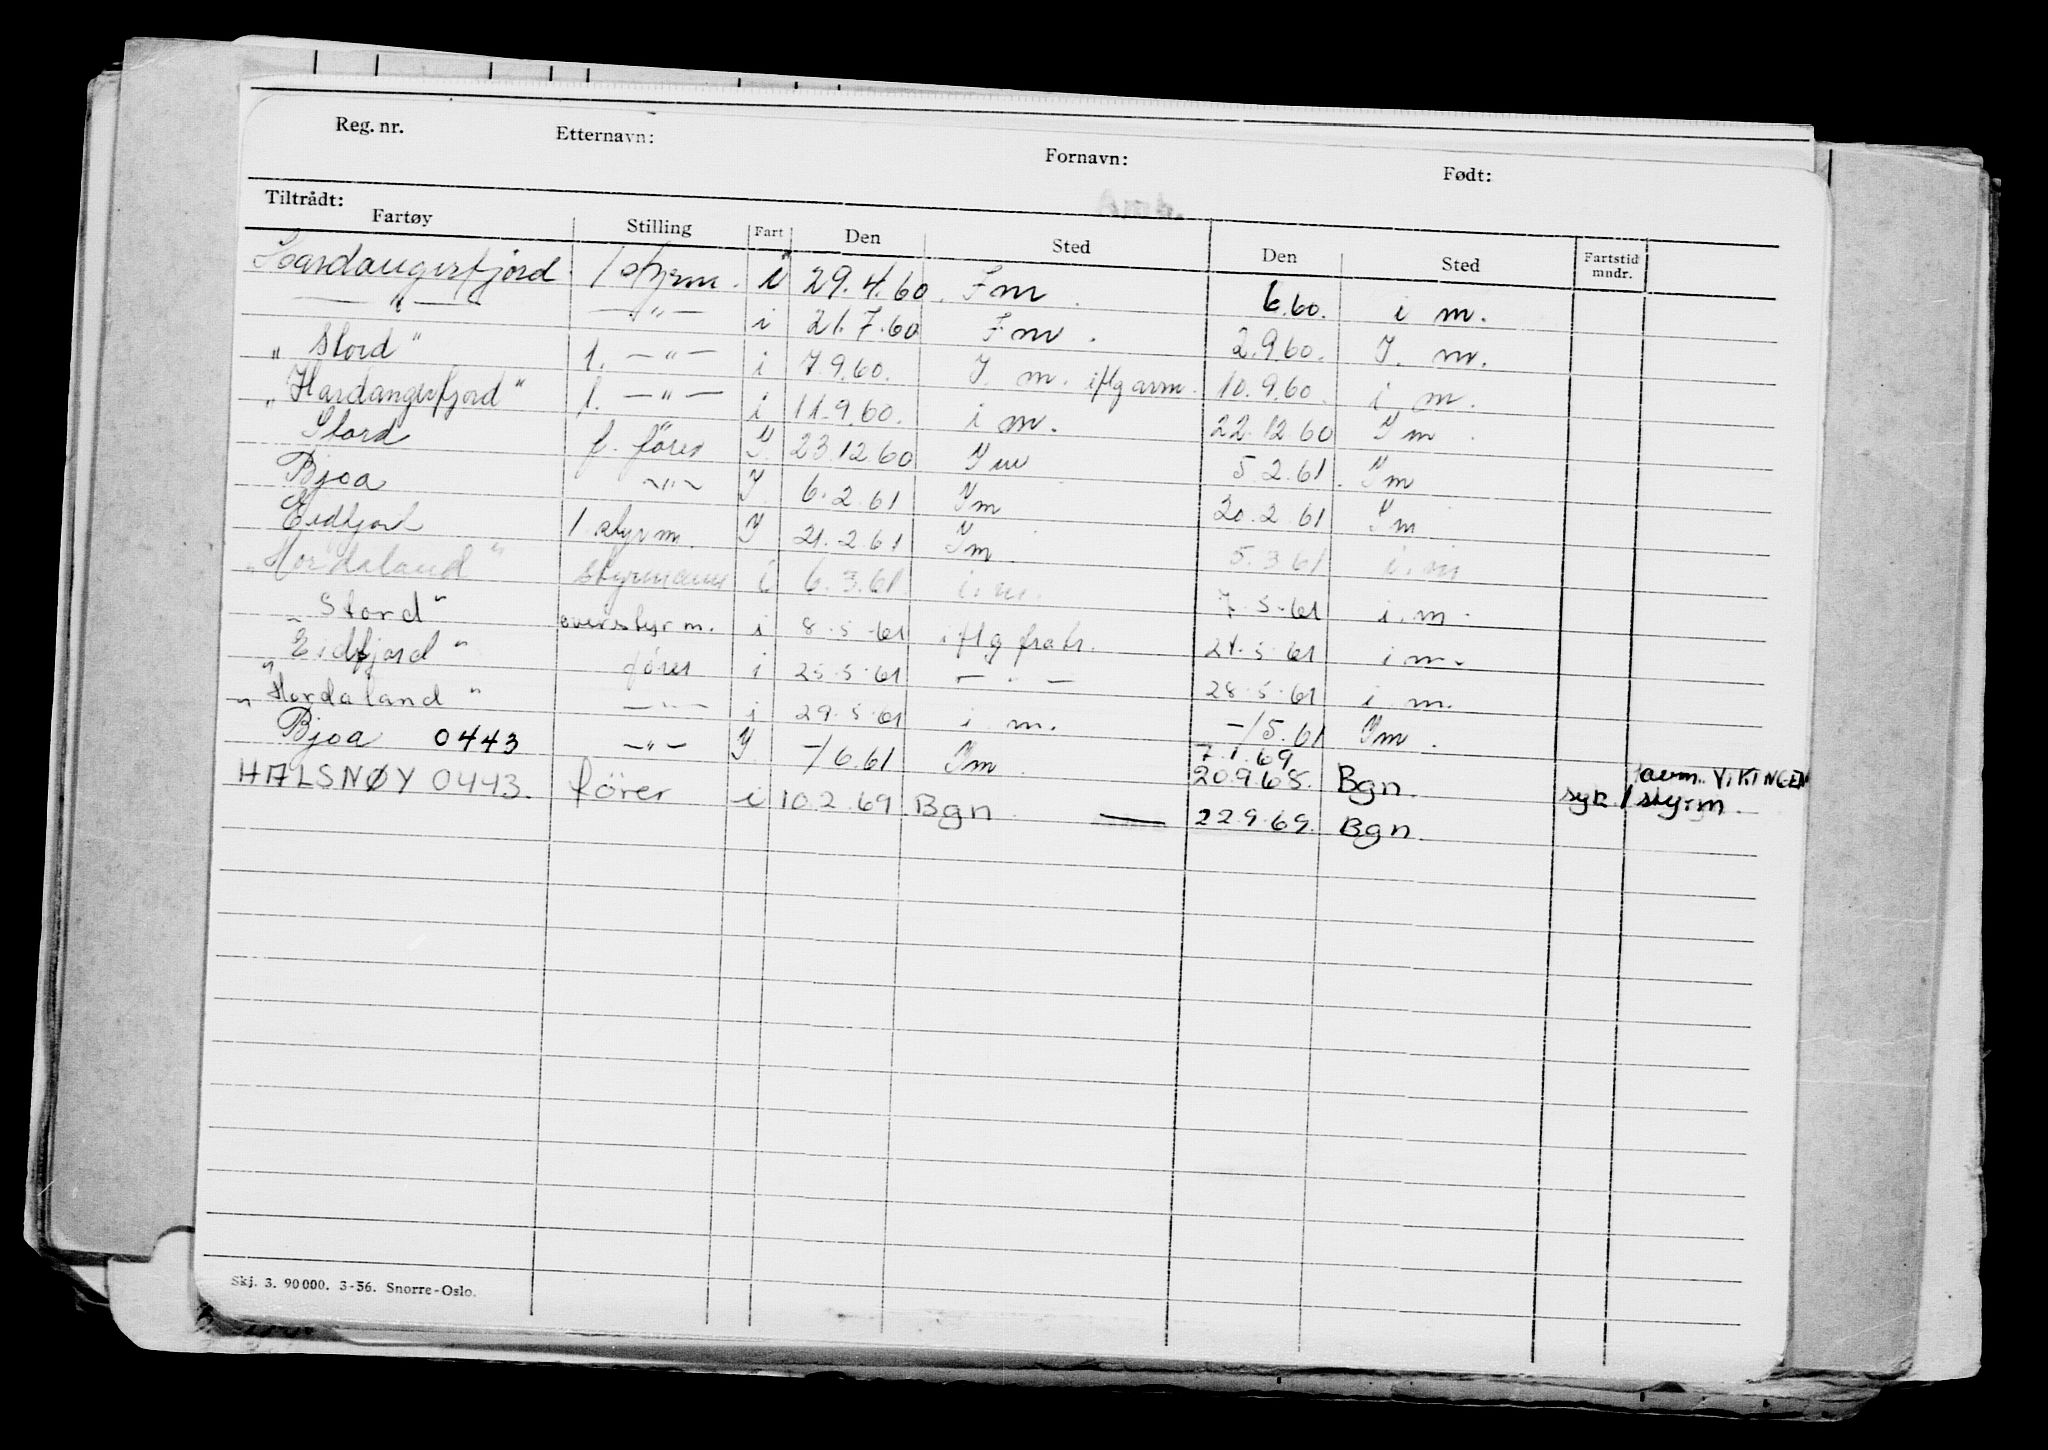 Reg. nr. Etternavn: Fornavn: Født:
Tiltrådt:
Fartøy Stilling Fart Den Sted Den Sted Fartstid mndr.
Hardangerfjord 1 styrm. i 29.4.60. Im. 6.60. i m.
— " — — " — i 21.7.60 Im. 2.9.60. I. m.
"Stord" 1. — " — i 7.9.60. I. m. iflg avm. 10.9.60. i m.
"Hardangerfjord" 1. — " — i 11.9.60. i m. 22.12.60 I m.
Stord f. fører I. 23.12.60 I m 5.2.61. I m
Bjoa — " — I. 6.2.61 I m 20.2 61 I m
Eidfjord 1 styrm. I 21.2.61 I m 5.3 61 i. m
"Hordaland" styrmann i 6.3.61. i. m. 7.5.61 i. m.
"Stord" overstyrm. i 8.5.61 iflg 24.5.61 i m.
"Eidfjord" fører i 25.5.61 — " — 28.5.61 i m.
"Hordaland" — " — i 29.5.61 i m. -/5.61 I m.
Bjoa 0443 — " — I -/6.61 I m 7.1.69
20.9.68. Bgn. syk 1 styrm. avm. VIKINGEN
HALSNØY 0443. fører i 10.2.69. Bgn — 22.9.69. Bgn.
Skj. 3. 90 000. 3-56. Snorre-Oslo.